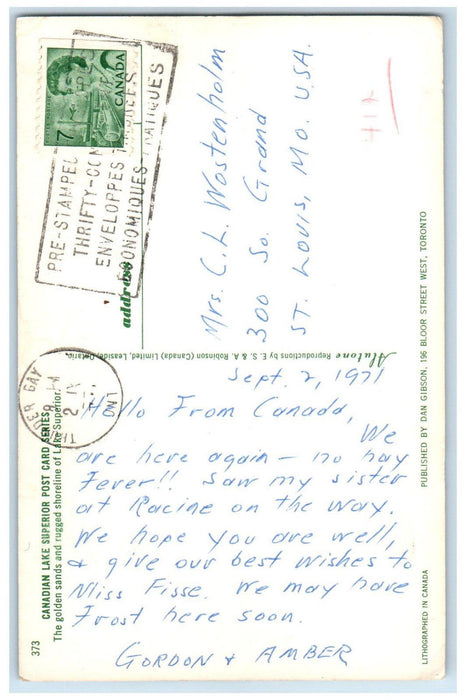 7
CANADA
PRE-STAMPED
THRIFTY-CON
ENVELOPPES
ECONOMIQUES PRATIQUES
address
Mrs. C. L. Wostenholm
300 So. Grand
ST. LOUIS, MO. U.S.A.
412
Alutone Reproductions by E. S. & A. Robinson (Canada) Limited, Leaside, Ontario.
PUBLISHED BY DAN GIBSON, 196 BLOOR STREET WEST, TORONTO
LITHOGRAPHED IN CANADA
373
CANADIAN LAKE SUPERIOR POST CARD SERIES
The golden sands and rugged shoreline of Lake Superior.
THUNDER BAY
PM
2 IX
ONT
Sept. 2, 1971
Hello From Canada,
We
are here again - no hay
Fever!! Saw my sister
at Racine on the way.
We hope you are well,
& give our best wishes to
Miss Fisse. We may have
Frost here soon.
GORDON & AMBER